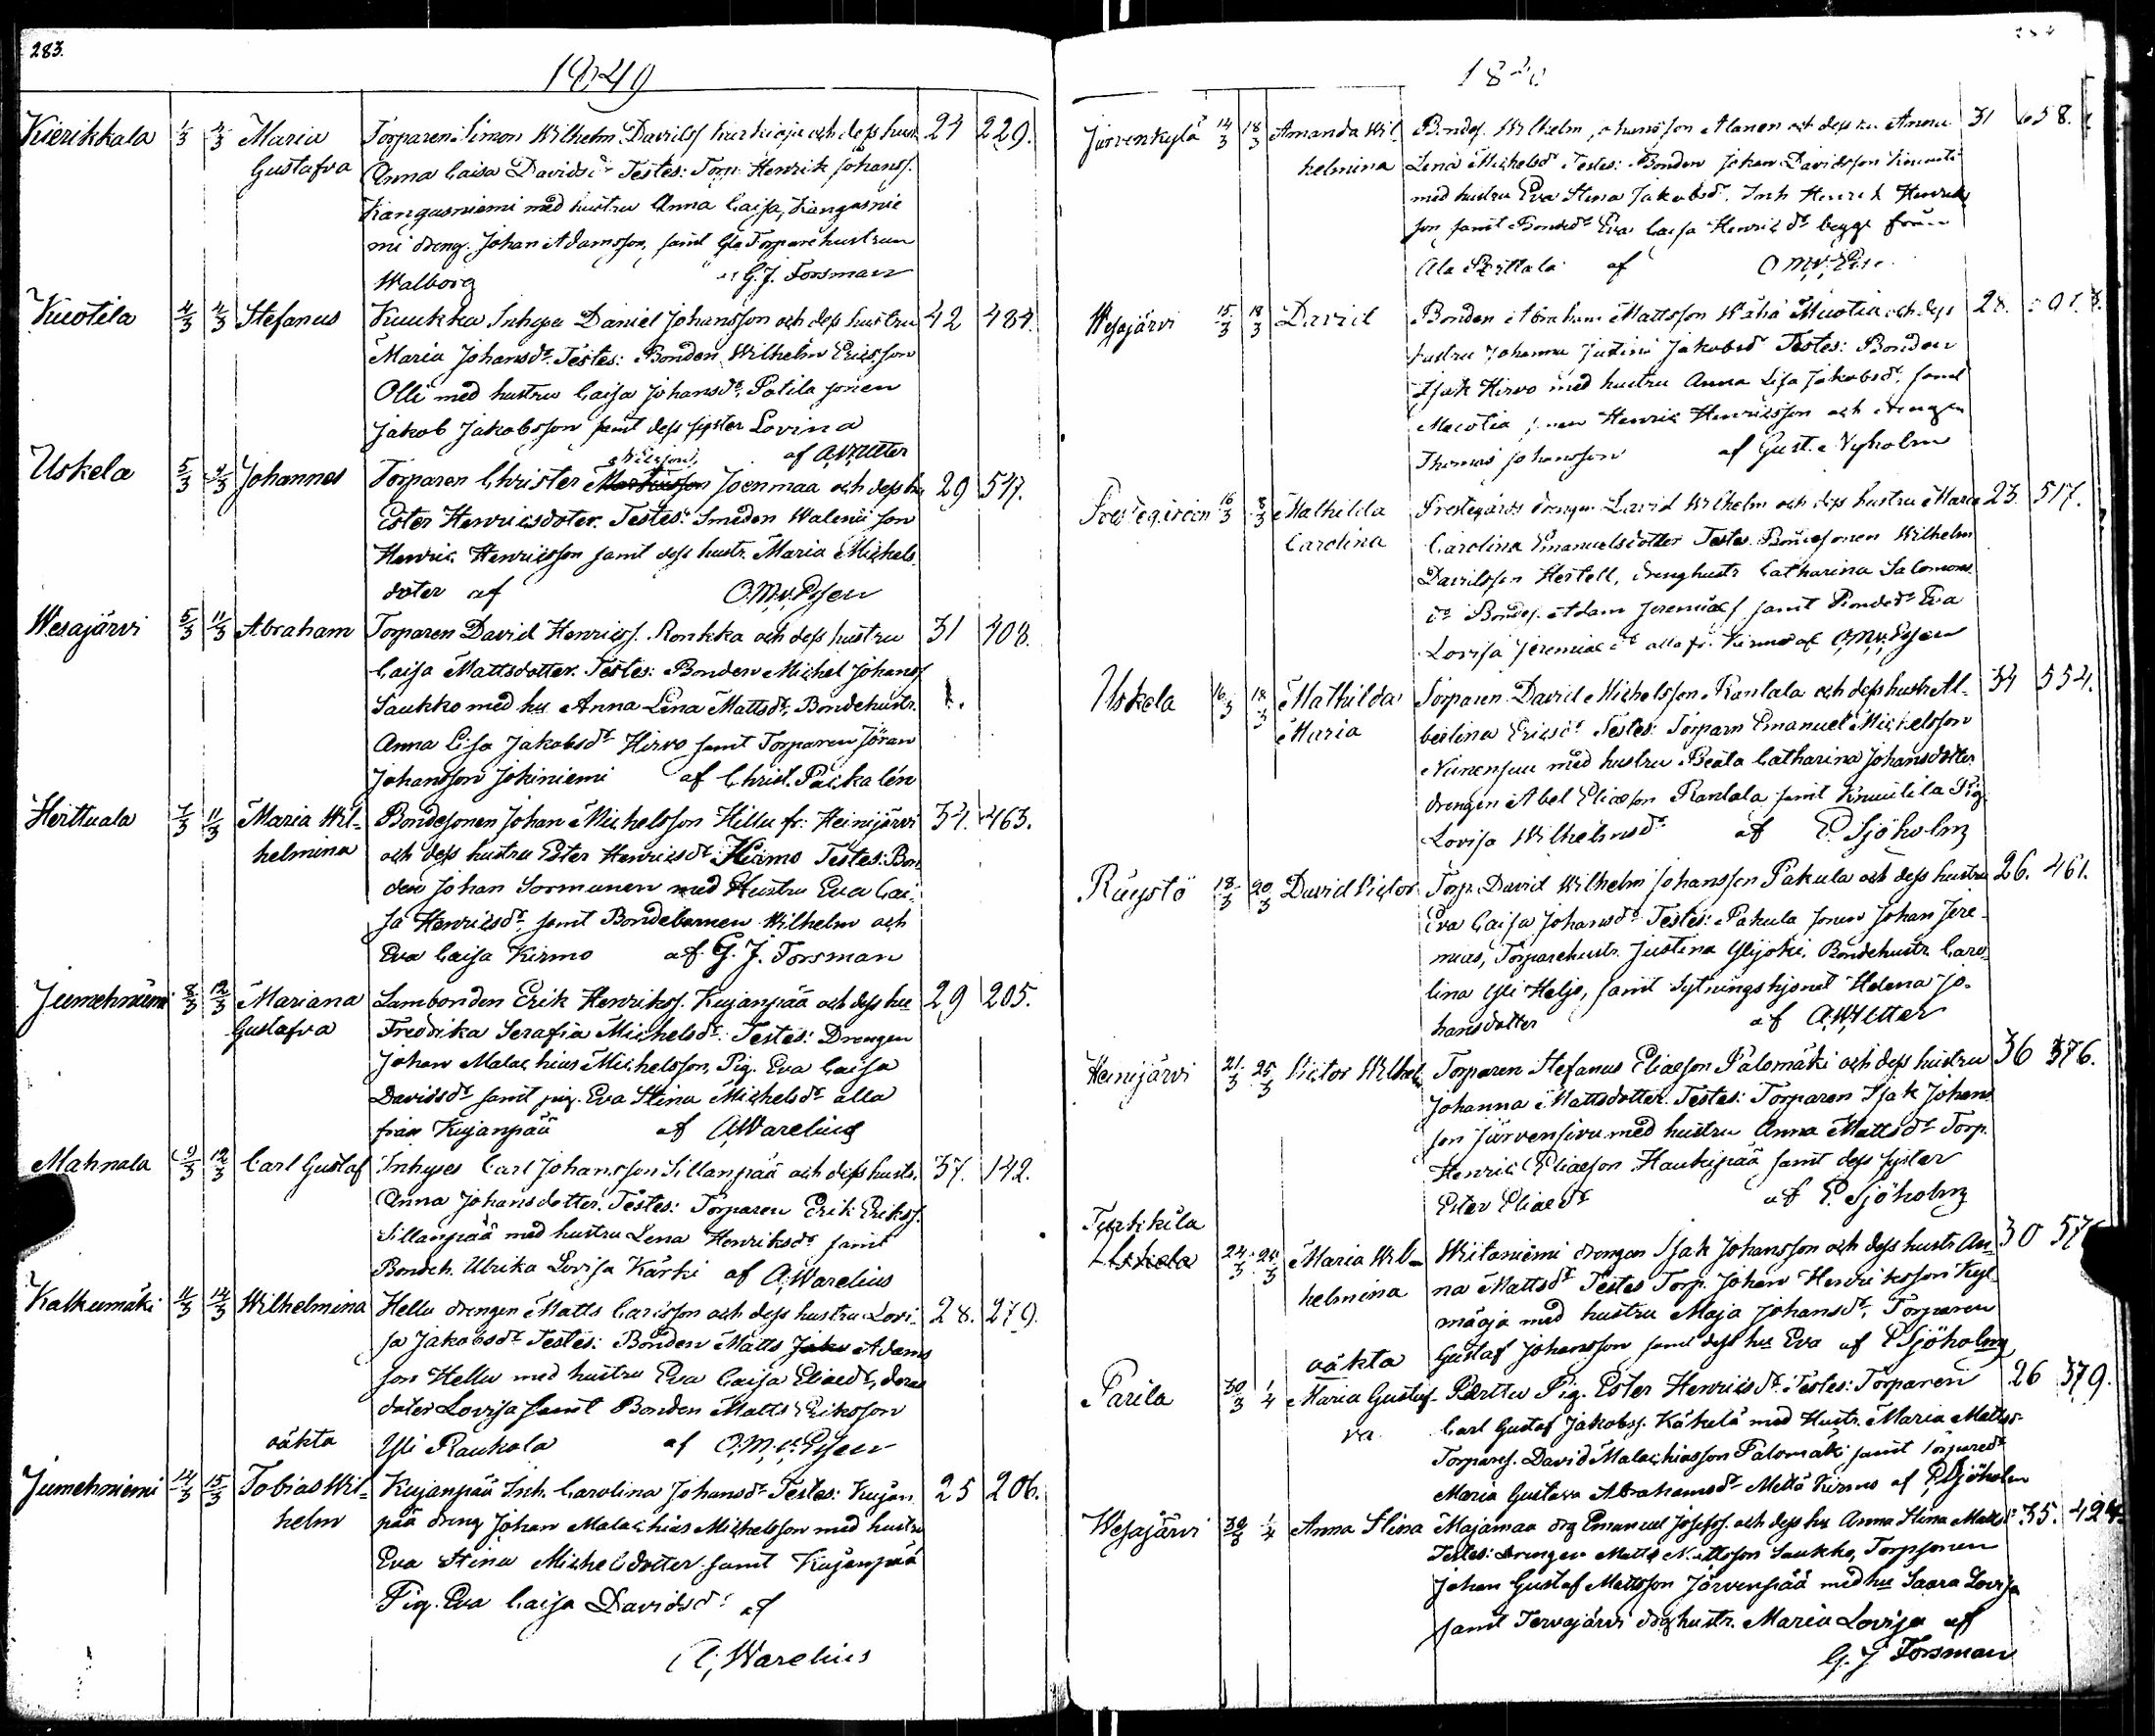 283.
1849
Kierikkala 1/3 4/3 Maria Torparen Simon Wilhelm Davidss och dess hust 24 229.
Gustafva Anna Caisa Davidsdr Testes: Torp. Henrik Johanss.
Kangasniemi med hustru Anna Caisa, Kangasnie
mi dreng. Johan Adamsson, samt Gla Torpare hustrun
Walborg af G. J. Forsman
Kuotila 4/3 4/3 Stefanus Kuukka Inhyses Daniel Johansson och dess hustru 42 484.
Maria Johansdr. Testes: Bonden Wilhelm Ericsson
Olli med hustru Caisa Johansdr, Patila sonen
Jakob Jakobsson samt dess syster Lovina
af A.W. Utter
Uskela 5/3 Johannes Torparen Christer Joenmaa och dess hu 29 547.
Ester Henricsdoter. Testes: Smeden Walenii son
Henric Henricsson samt dess hustr. Maria Michels
doter af O.M.v. Essen
Wesajärvi 5/3 11/3 Abraham Torparen David Henricss. Ronkka och dess hustru 31 408.
Caisa Mattsdotter. Testes: Bonden Michel Johanss
Saukko med hu Anna Lena Mattsdr, Bondehustr.
Anna Lisa Jakobsdr Hirvo samt Torparen Jöran
Johansson Jokiniemi af Christ. Packalén
Herttuala 7/3 11/3 Maria Wil- Bondesonen Johan Michelsson Hillu fr. Heinijärvi 34. 463.
helmina och dess hustru Ester Henricsdr Kirmo Testes: Bon
den Johan Sormunen med Hustru Eva Cai-
sa Henricsdr samt Bondebarnen Wilhelm och
Eva Caisa Kirmo af G. J. Forsman
Jumehniemi 8/3 12/3 Mariana Lambonden Erik Henrikss. Kujanpää och dess hu 29 205.
Gustafva Fredrika Serafia Michelsdr. Testes: Drengen
Johan Malachias Michelsson, Pig. Eva Caisa
Davidsdr samt pig. Eva Stina Michelsdr alla
från Kujanpää af A. Warelius
Mahnala 9/3 12/3 Carl Gustaf Inhyses Carl Johansson Sillanpää och dess hustr. 37. 142.
Anna Johansdotter. Testes: Torparen Erik Erikss.
Sillanpää med hustru Lena Henriksdr samt
Bondeh. Ulrika Lovisa Kärki af A. Warelius
Kalkumäki 11/3 12/3 Wilhelmina Hellu drengen Matts Carlsson och dess hustru Lovi- 28. 279.
sa Jakobsdr Testes: Bonden Matts Jako Adams
son Hellu med hustru Eva Caisa Eliaedr, deras
doter Lovisa samt Bonden Matts Eriksson
oäkta Yli Raukola af O.M.v. Essen
Jumehniemi 14/3 15/3 Tobias Wil- Kujanpää Inh. Carolina Johansdr Testes: Kujan 25 206.
helm pää dreng Johan Malachias Michelsson med hustru
Eva Stina Michelsdotter samt Kujanpää
Pig. Eva Caisa Davidsdr af
A. Warelius
18
Järvenkylä 14/3 18/3 Amanda Wil- Bondes. Wilhelm Johansson Alanen och dess hu Anna 31 658.
helmina Lena Michelsdr Testes: Bonden Johan Davidsson
med hustru Eva Stina Jakobsd. Inh Henrik Henriks
son samt Bondedr Eva Caisa Henricsdr begge från
Ala af O.M.v. Essen
Wesajärvi 15/3 18/3 David Bonden Abraham Mattsson Wähä Muotia och dess 28.
hustru Johanna Justina Jakobsd Testes: Bonden
Isak Hirvo med hustru Anna Lisa Jakobsdr, samt
sonen Henric Henricsson och drengen
Thomas Johansson af Gust. Nyholm
Prestegården 16/3 18/3 Mathilda Prestegårds drengen David Wilhelm och dess hustru Maria 23. 517.
Carolina Carolina Emanuelsdotter Testes. Bondesonen Wilhelm
Davidsson Hertell, drenghustr Catharina Salomons
dr Bondes. Adam Jeremiaes samt Bondedr Eva
Lovisa Jeremiaedr alla fr. Kirmo af O.M.v. Essen
Uskela 16/3 18/3 Mathilda Torparen David Michelsson Rantala och dess hustr Al- 34 554.
Maria bertina Ericsdr Testes: Torparn Emanuel Michelsson
Niinensuu med hustru Beata Catharina Johansdotter
drengen Abel Eliaeson Rantala samt Knuutila Pig.
Lovisa Wilhelmsdr af P. Sjöholm
Ruystö 18/3 20/3 David Victor Torp. David Wilhelm Johansson Pakula och dess hustru 26. 461.
Eva Caisa Johansdr Testes: Pakula sonen Johan Jere-
mias, Torparehustr. Justina Ylijoki, Bondehustr. Caro-
lina Yli Heljo, samt Sytningshjonet Helena Jo-
hansdotter af A.W. Utter
Heinijärvi 21/3 25/3 Victor Wilhelm Torparen Stefanus Eliaeson Palomäki och dess hustru 36 376.
Johanna Mattsdotter. Testes: Torparen Isak Johans
son Järvensivu med hustru Anna Mattsdr Torp.
Henric Eliaeson Haukipää samt dess syster
Ester Eliaedr af P. Sjöholm
Uskela 24/3 25/3 Maria Wil- Wiitaniemi drengen Isak Johansson och dess hustr An- 30 57
helmina na Mattsdr Testes Torp. Johan Henriksson Kyl
mäoja med hustru Maja Johansdr, Torparen
oäkta Gustaf Johansson samt dess hu Eva af P Sjöholm
Parila 30/3 1/4 Maria Gustaf- Perttu Pig. Ester Henricsdr. Testes: Torparen 26 379.
va Carl Gustaf Jakobss. Käkelä med Hustr. Maria Mattsdr
Torpares. David Malachiasson Palomäki samt Torparedr
Maria Gustava Abrahamsdr Mellä Kirmo af P. Sjöholm
Wesajärvi 30/3 1/4 Anna Stina Majamaa drg Emanuel Josefss. och dess hu Anna Stina Mattsdr 35. 424
Testes: Drengen Matts Mattsson Saukko, Torpsonen
Johan Gustaf Mattsson Järvenpää med hu Saara Lovisa
samt Tervajärvi drghustr. Maria Lovisa af
G. J Forsman